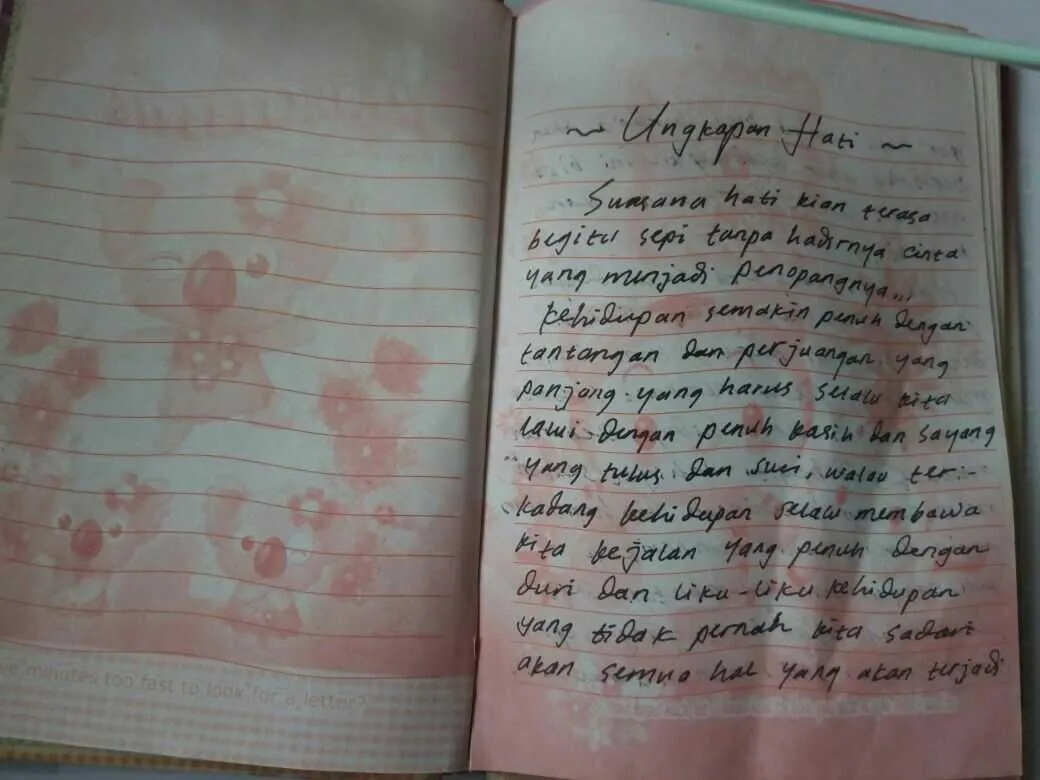 minutes too fast to look for a letter?
~ Ungkapan Hati ~
Suasana hati kian terasa
begitu sepi tanpa hadirnya cinta
yang menjadi penopangnya...
kehidupan semakin penuh dengan
tantangan dan perjuangan yang
panjang yang harus selalu kita
lalui dengan penuh kasih dan sayang
yang tulus dan suci, walau ter-
kadang kehidupan selalu membawa
kita kejalan yang penuh dengan
duri dan liku-liku kehidupan
yang tidak pernah kita sadari
akan semua hal yang akan terjadi